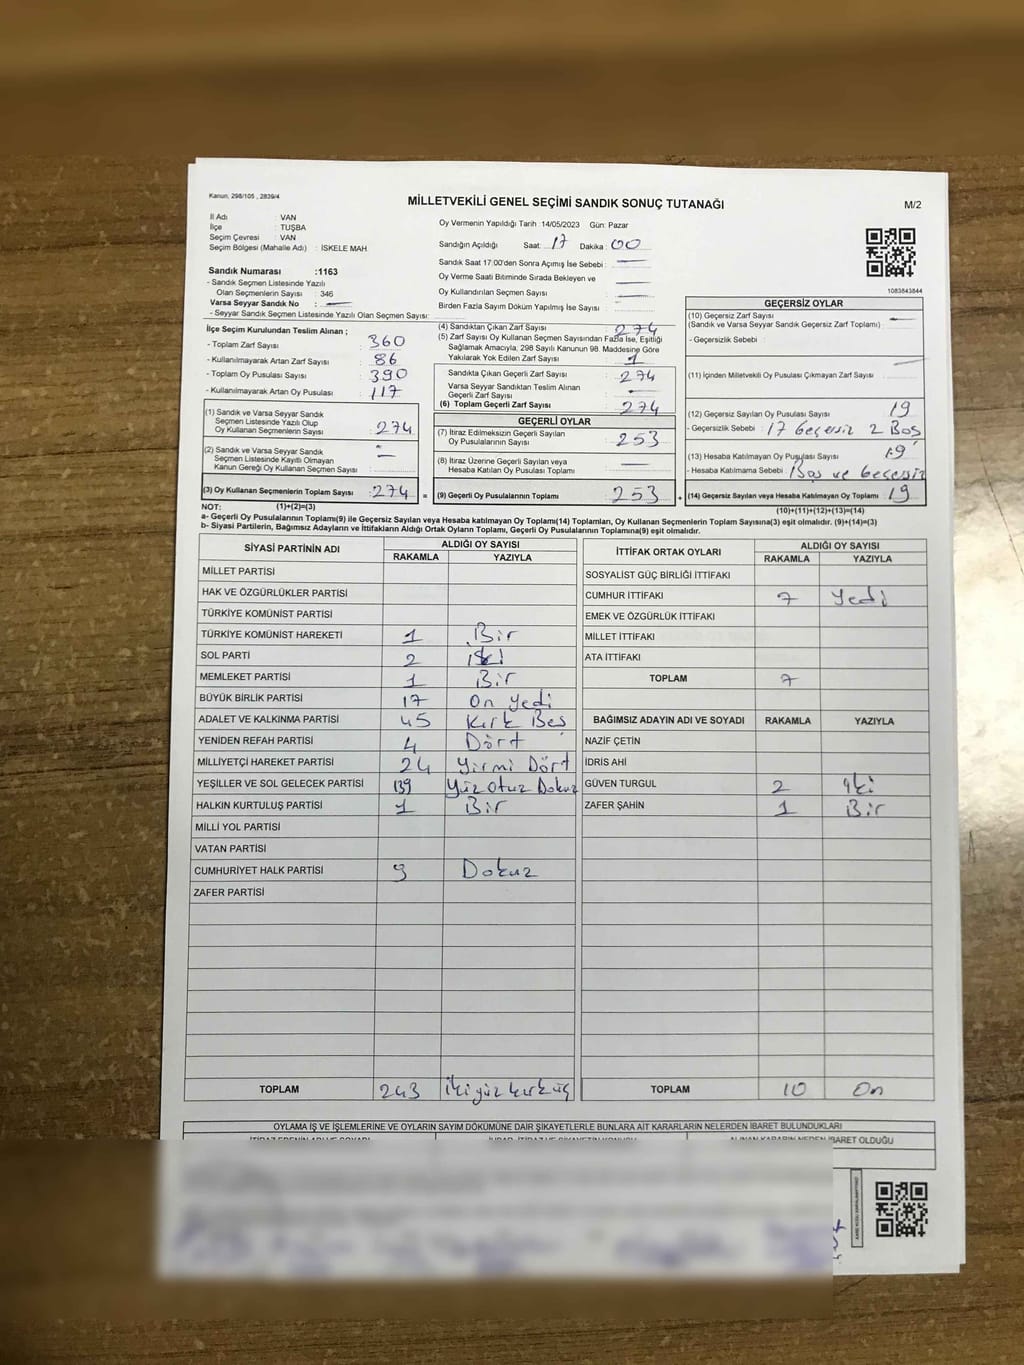 Kanun, 298/105 , 2839/4
MİLLETVEKİLİ GENEL SEÇİMİ SANDIK SONUÇ TUTANAĞI
M/2
İl Adı : VAN
İlçe : TUŞBA
Seçim Çevresi : VAN
Seçim Bölgesi (Mahalle Adı) : İSKELE MAH.
Sandık Numarası :1163
- Sandık Seçmen Listesinde Yazılı
Olan Seçmenlerin Sayısı : 346
Varsa Seyyar Sandık No :
- Seyyar Sandık Seçmen Listesinde Yazılı Olan Seçmen Sayısı:
Oy Vermenin Yapıldığı Tarih :14/05/2023 Gün: Pazar
Sandığın Açıldığı Saat: 17 Dakika : 00
Sandık Saat 17:00'den Sonra Açımış İse Sebebi :
Oy Verme Saati Bitiminde Sırada Bekleyen ve
Oy Kullandırılan Seçmen Sayısı :
Birden Fazla Sayım Döküm Yapılmış İse Sayısı :
1083843844
İlçe Seçim Kurulundan Teslim Alınan ;
- Toplam Zarf Sayısı : 360
- Kullanılmayarak Artan Zarf Sayısı : 86
- Toplam Oy Pusulası Sayısı : 390
- Kullanılmayarak Artan Oy Pusulası : 117
(1) Sandık ve Varsa Seyyar Sandık
Seçmen Listesinde Yazılı Olup
Oy Kullanan Seçmenlerin Sayısı : 274
(2) Sandık ve Varsa Seyyar Sandık
Seçmen Listesinde Kayıtlı Olmayan
Kanun Gereği Oy Kullanan Seçmen Sayısı :
(3) Oy Kullanan Seçmenlerin Toplam Sayısı : 274 =
(4) Sandıktan Çıkan Zarf Sayısı : 274
(5) Zarf Sayısı Oy Kullanan Seçmen Sayısından Fazla İse, Eşitliği
Sağlamak Amacıyla, 298 Sayılı Kanunun 98. Maddesine Göre
Yakılarak Yok Edilen Zarf Sayısı : 1
Sandıkta Çıkan Geçerli Zarf Sayısı : 274
Varsa Seyyar Sandıktan Teslim Alınan
Geçerli Zarf Sayısı :
(6) Toplam Geçerli Zarf Sayısı : 274
GEÇERLİ OYLAR
(7) İtiraz Edilmeksizin Geçerli Sayılan
Oy Pusulalarının Sayısı : 253
(8) İtiraz Üzerine Geçerli Sayılan veya
Hesaba Katılan Oy Pusulası Toplamı :
(9) Geçerli Oy Pusulalarının Toplamı : 253 +
GEÇERSİZ OYLAR
(10) Geçersiz Zarf Sayısı :
(Sandık ve Varsa Seyyar Sandık Geçersiz Zarf Toplamı)
- Geçersizlik Sebebi :
(11) İçinden Milletvekili Oy Pusulası Çıkmayan Zarf Sayısı :
(12) Geçersiz Sayılan Oy Pusulası Sayısı : 19
- Geçersizlik Sebebi : 17 Geçersiz 2 Boş
(13) Hesaba Katılmayan Oy Pusulası Sayısı : 19
- Hesaba Katılmama Sebebi : Boş ve Geçersiz
(14) Geçersiz Sayılan veya Hesaba Katılmayan Oy Toplamı : 19
NOT: (1)+(2)=(3)
(10)+(11)+(12)+(13)=(14)
a- Geçerli Oy Pusulalarının Toplamı(9) ile Geçersiz Sayılan veya Hesaba katılmayan Oy Toplamı(14) Toplamları, Oy Kullanan Seçmenlerin Toplam Sayısına(3) eşit olmalıdır. (9)+(14)=(3)
b- Siyasi Partilerin, Bağımsız Adayların ve İttifakların Aldığı Ortak Oyların Toplamı, Geçerli Oy Pusulalarının Toplamına(9) eşit olmalıdır.
SİYASİ PARTİNİN ADI
ALDIĞI OY SAYISI
RAKAMLA YAZIYLA
MİLLET PARTİSİ
HAK VE ÖZGÜRLÜKLER PARTİSİ
TÜRKİYE KOMÜNİST PARTİSİ
TÜRKİYE KOMÜNİST HAREKETİ 1 Bir
SOL PARTİ 2 iki
MEMLEKET PARTİSİ 1 Bir
BÜYÜK BİRLİK PARTİSİ 17 On yedi
ADALET VE KALKINMA PARTİSİ 45 Kırk Beş
YENİDEN REFAH PARTİSİ 4 Dört
MİLLİYETÇİ HAREKET PARTİSİ 24 Yirmi Dört
YEŞİLLER VE SOL GELECEK PARTİSİ 139 Yüz Otuz Dokuz
HALKIN KURTULUŞ PARTİSİ 1 Bir
MİLLİ YOL PARTİSİ
VATAN PARTİSİ
CUMHURİYET HALK PARTİSİ 9 Dokuz
ZAFER PARTİSİ
TOPLAM 243 İkiyüz kırküç
İTTİFAK ORTAK OYLARI
ALDIĞI OY SAYISI
RAKAMLA YAZIYLA
SOSYALİST GÜÇ BİRLİĞİ İTTİFAKI
CUMHUR İTTİFAKI 7 Yedi
EMEK VE ÖZGÜRLÜK İTTİFAKI
MİLLET İTTİFAKI
ATA İTTİFAKI
TOPLAM 7
BAĞIMSIZ ADAYIN ADI VE SOYADI RAKAMLA YAZIYLA
NAZİF ÇETİN
İDRİS AHİ
GÜVEN TURGUL 2 iki
ZAFER ŞAHİN 1 Bir
TOPLAM 10 On
OYLAMA İŞ VE İŞLEMLERİNE VE OYLARIN SAYIM DÖKÜMÜNE DAİR ŞİKAYETLERLE BUNLARA AİT KARARLARIN NELERDEN İBARET BULUNDUKLARI
ALINAN KARARIN NEDEN İBARET OLDUĞU